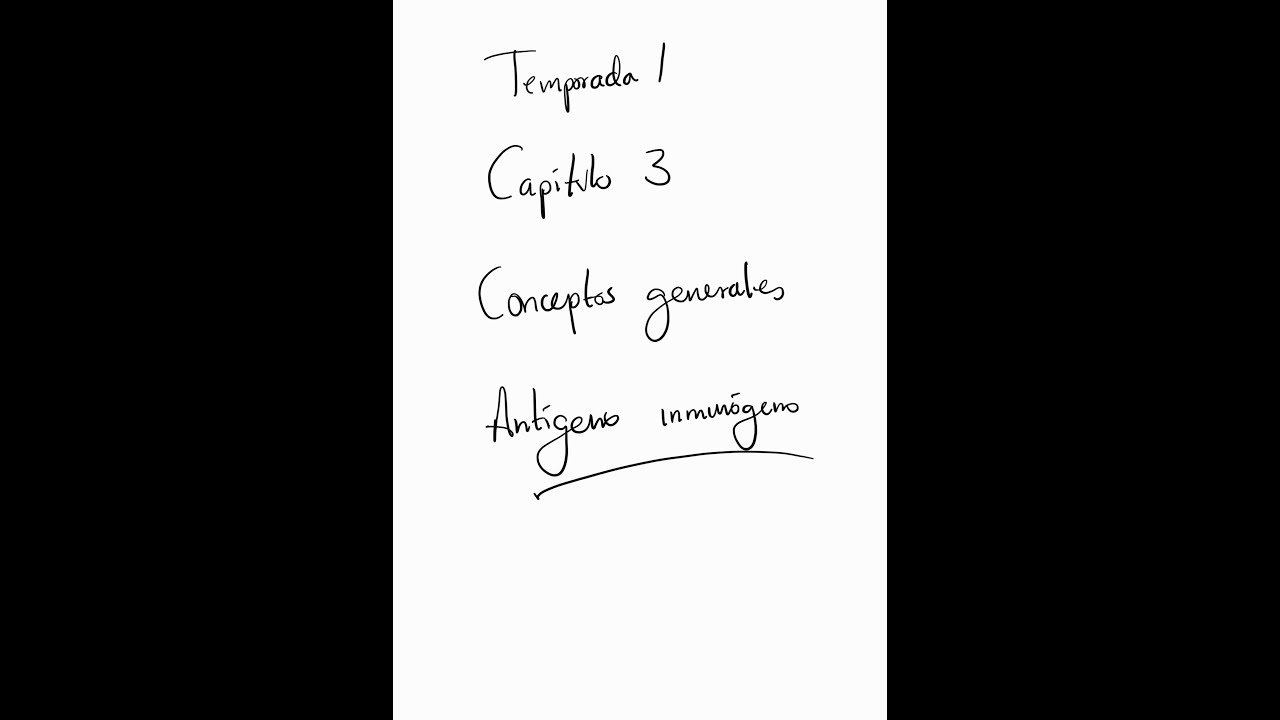 Temporada 1
Capítulo 3
Conceptos generales
Antígeno inmunógeno